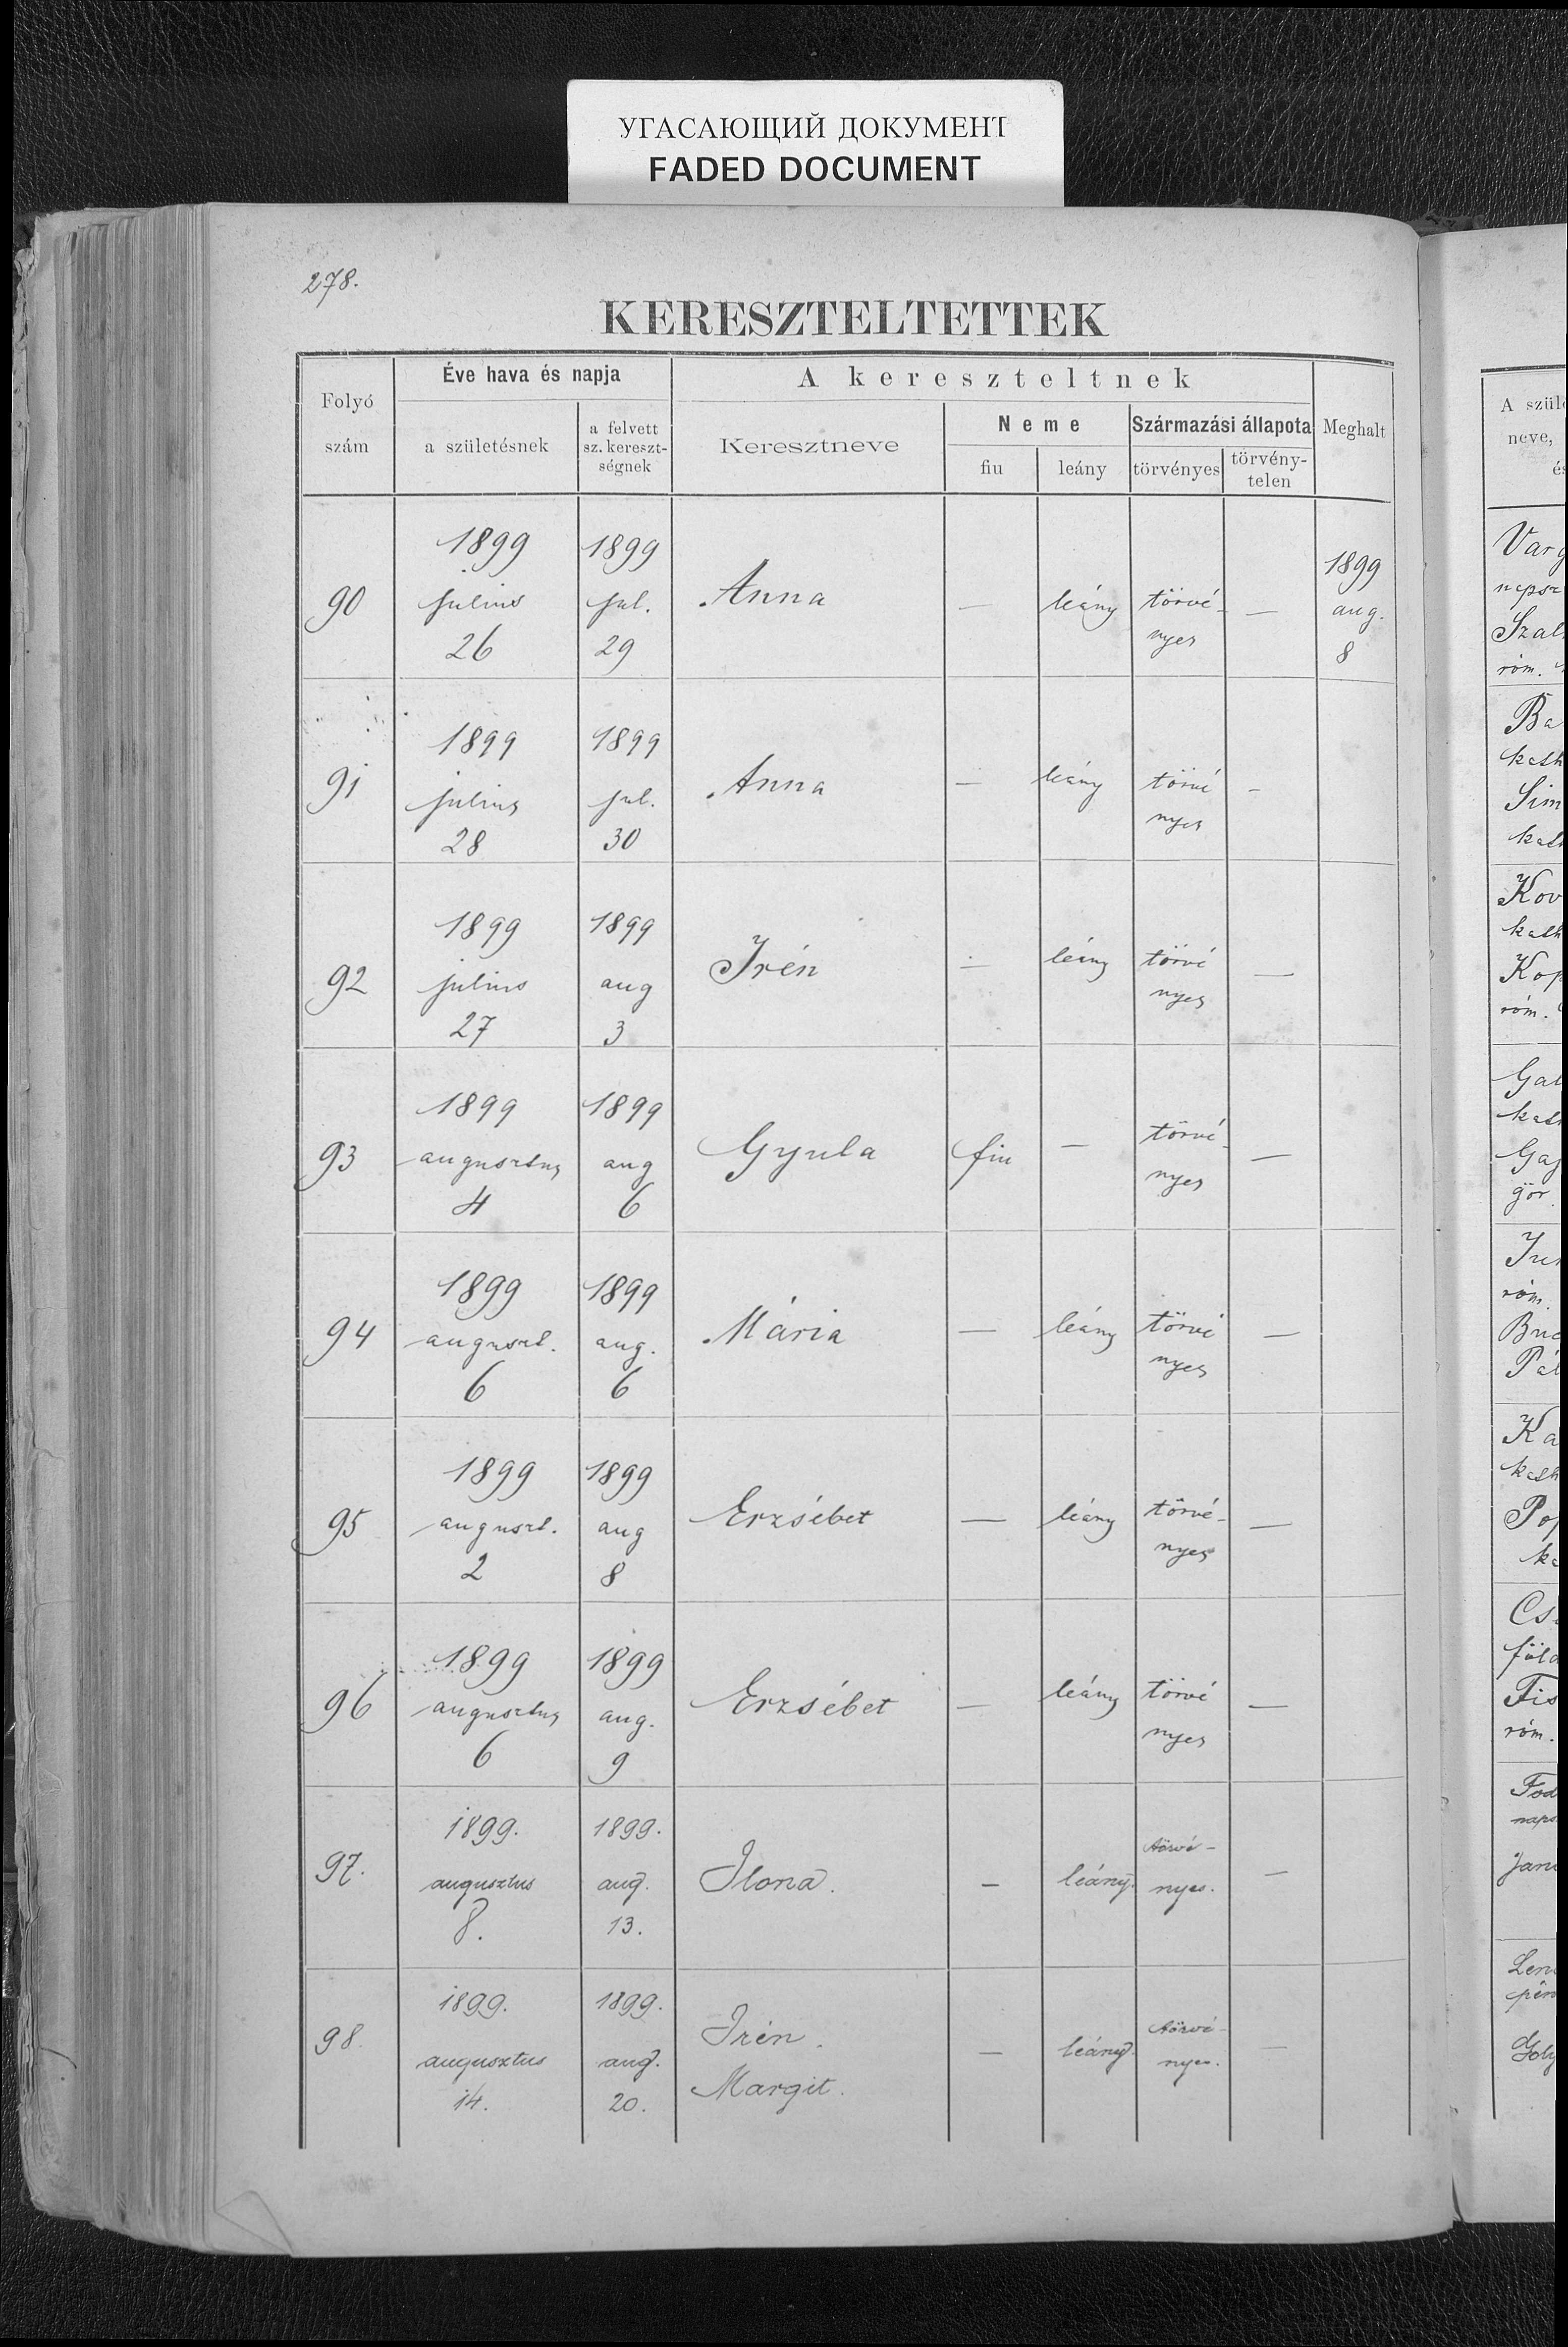 УГАСАЮЩИЙ ДОКУМЕНТ
FADED DOCUMENT
278.
KERESZTELTETTEK
Folyó szám
Éve hava és napja
a születésnek
a felvett sz. kereszt-ségnek
A kereszteltnek
Keresztneve
Neme
fiu
leány
Származási állapota
törvényes
törvény-telen
Meghalt
90
1899 julius 26
1899 jul. 29
Anna
—
leány
törvé-nyes
—
1899 aug. 8
91
1899 julius 28
1899 jul. 30
Anna
—
leány
törvé nyes
-
92
1899 julius 27
1899 aug 3
Irén
—
leány
törvé nyes
—
93
1899 augusztus 4
1899 aug 6
Gyula
fiu
—
törvé-nyes
—
94
1899 auguszt. 6
1899 aug. 6
Mária
—
leány
törvé nyes
—
95
1899 auguszt. 2
1899 aug 8
Erzsébet
—
leány
törvé-nyes
—
96
1899 augusztus 6
1899 aug. 9
Erzsébet
—
leány
törvé nyes
—
97.
1899. augusztus 8.
1899. aug. 13.
Ilona.
—
leány.
törvé-nyes.
—
98.
1899. augusztus 14.
1899. aug. 20.
Irén. Margit.
—
leány.
törvé-nyes.
—
A szül
neve,
Varg
napsz
Szal
róm.
Ba
kath
Sim
kath
Kov
kath
Kop
róm.
Gal
kath
Gaj
gör.
róm.
Pál
Ka
kath
Pop
Cs
föld
Fis
róm.
Fod
naps